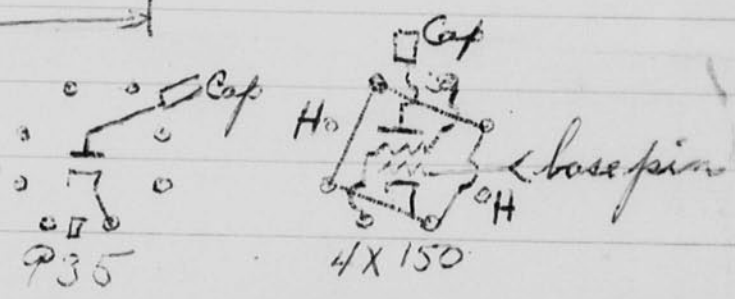 Cap
Cap
H
< base pin
H
P35
4X150